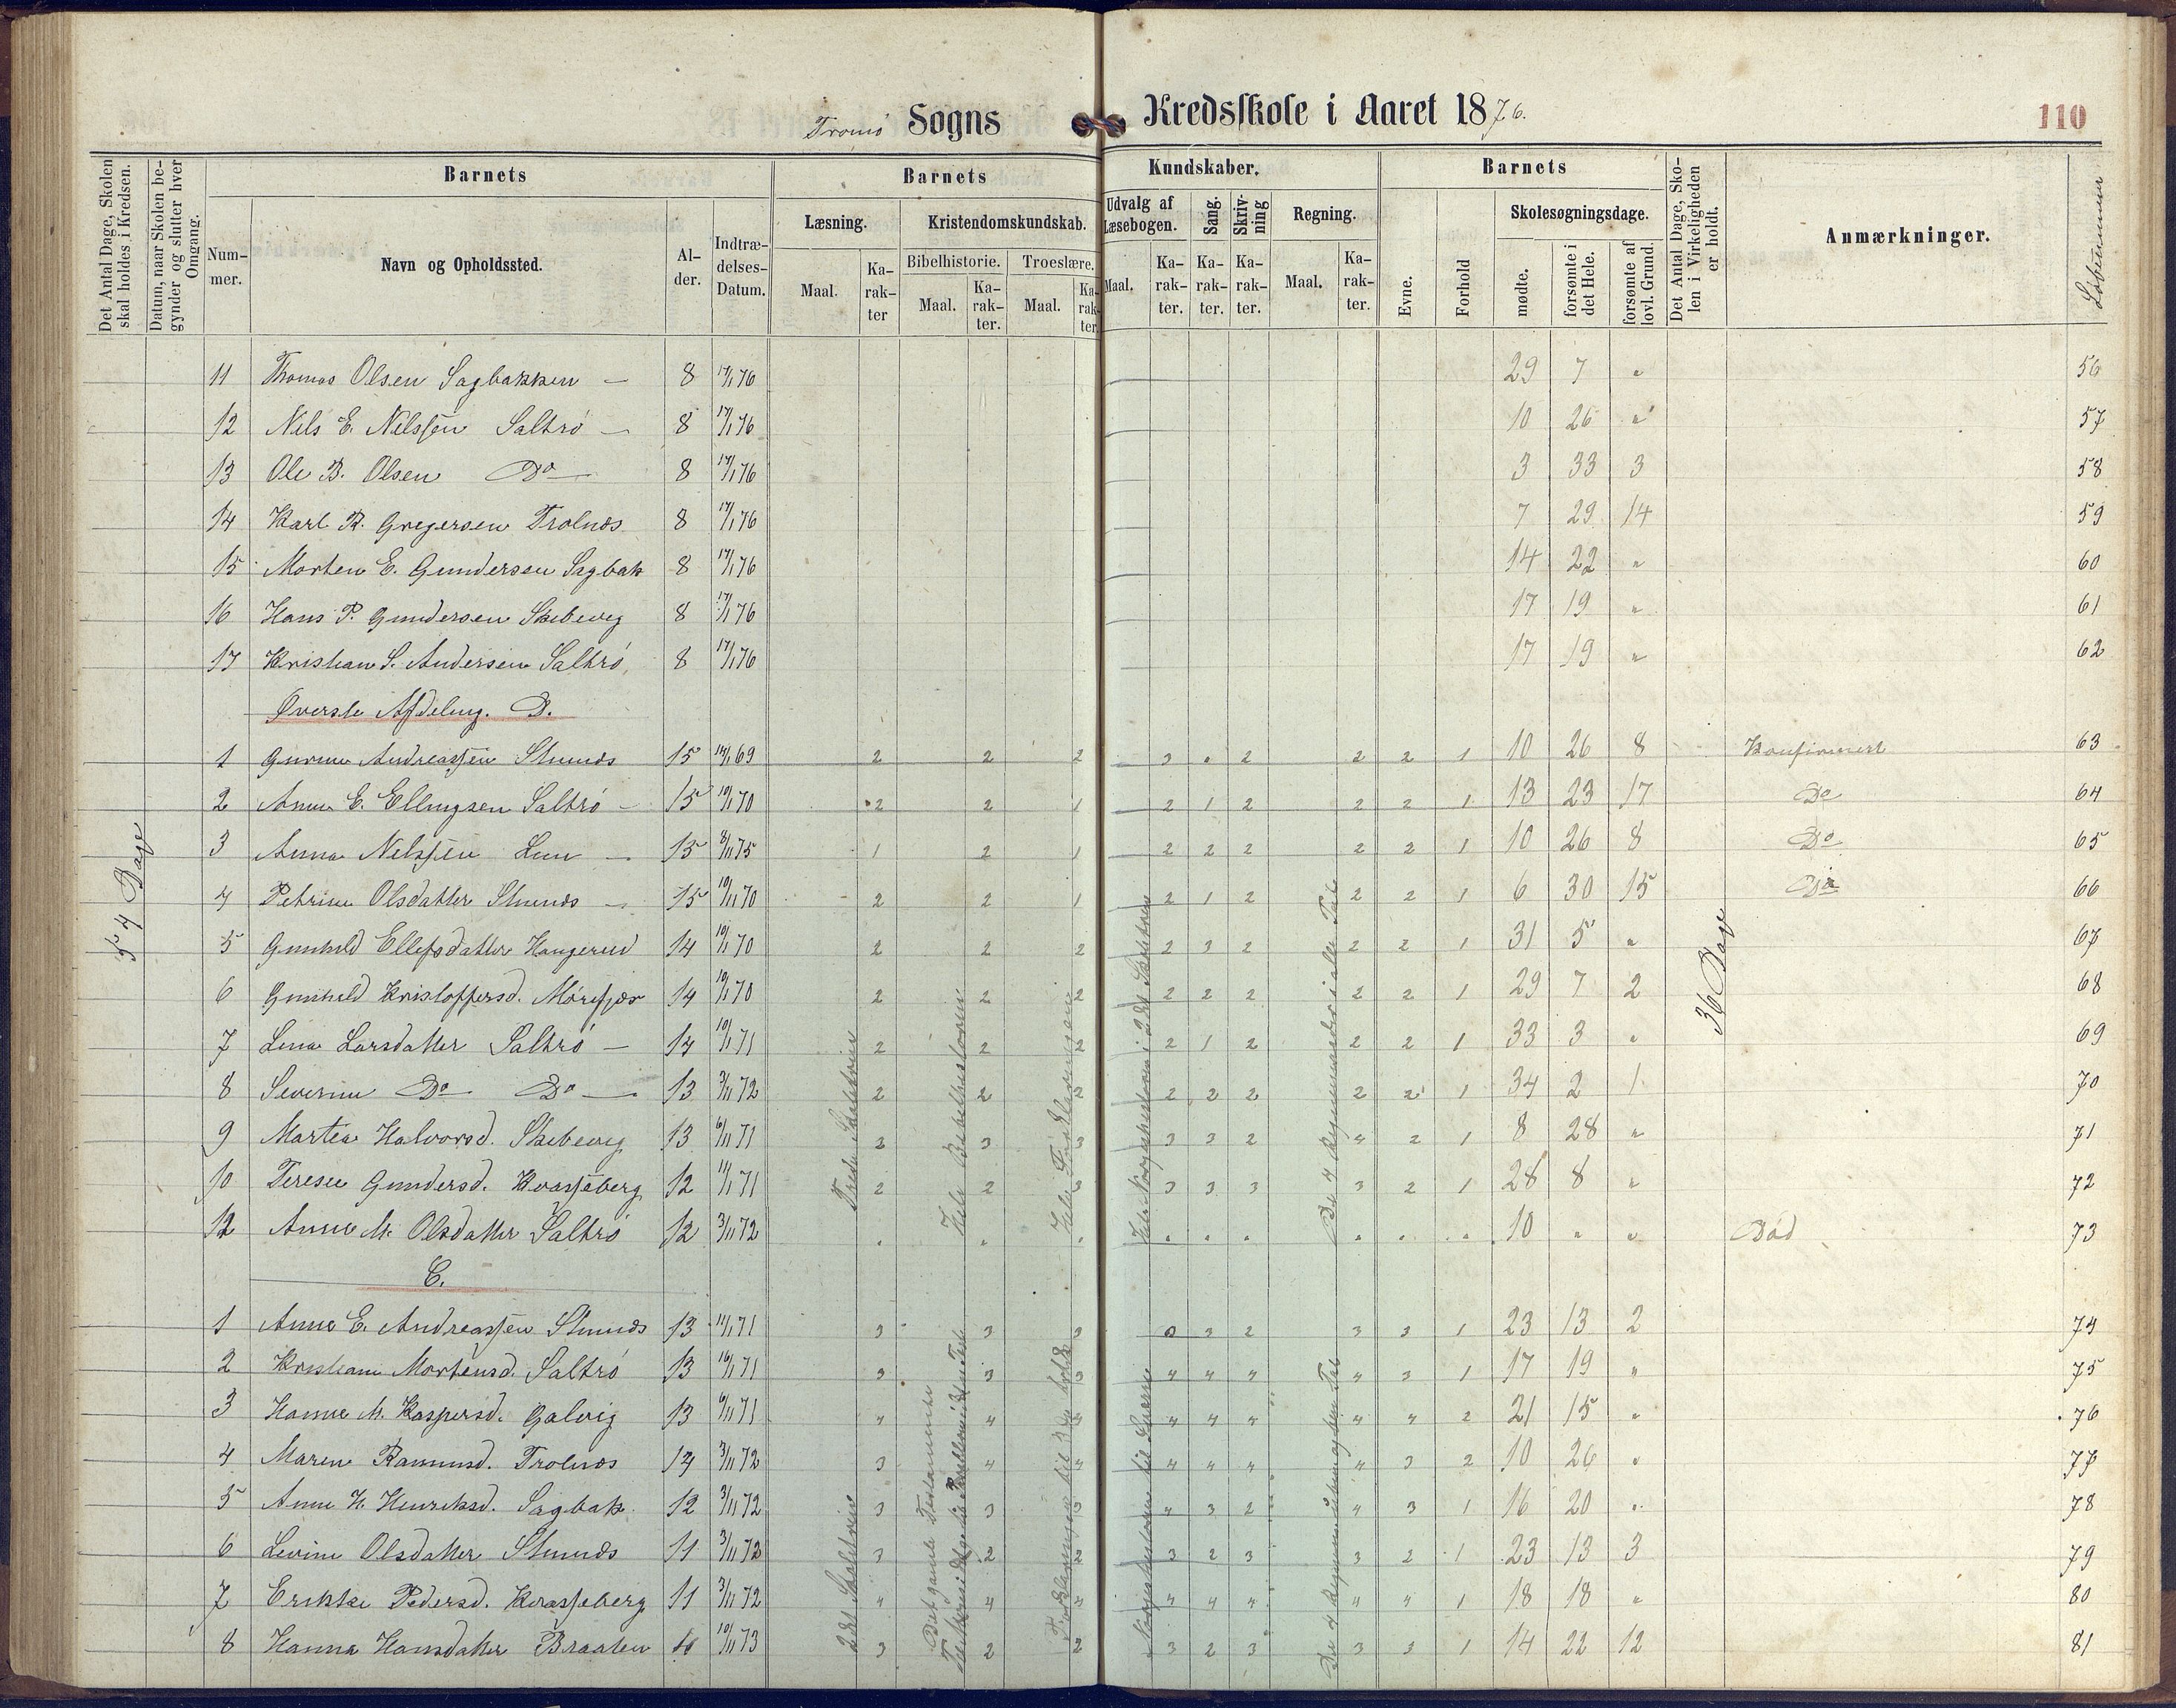 Tromø Sogns Kredsskole i Aaret 1876.
110
Det Antal Dage, Skolen skal holdes i Kredsen.
Datum, naar Skolen begynder og slutter hver Omgang.
Barnets
Nummer.
Navn og Opholdssted.
Alder.
Indtrædelses-Datum.
Barnets Kundskaber.
Læsning.
Maal.
Karakter
Kristendomskundskab.
Bibelhistorie.
Maal.
Karakter.
Troeslære.
Maal.
Karakter
Udvalg af Læsebogen.
Maal.
Karakter.
Sang.
Karakter.
Skrivning
Karakter.
Regning.
Maal.
Karakter.
Barnets
Evne.
Forhold
Skolesøgningsdage.
mødte.
forsømte i det Hele.
forsømte af lovl. Grund.
Det Antal Dage, Skolen i Virkeligheden er holdt.
Anmærkninger.
Løbenummer
11 Thomas Olsen Sagbakken — 8 17/1 76 29 7 " 56
12 Nils E. Nelssen Saltrø — 8 17/1 76 10 26 " 57
13 Ole B. Olsen Do — 8 17/1 76 3 33 3 58
14 Karl R. Gregersen Trolnæs 8 17/1 76 7 29 14 59
15 Morten E. Gundersen Sagbak 8 17/1 76 14 22 " 60
16 Hans P. Gundersen Skibevig 8 17/1 76 17 19 " 61
17 Kristian S. Andersen Saltrø 8 17/1 76 17 19 " 62
Øverste Afdeling. D.
54 Dage
36 Dage
1 Andreassen 15 14/1 69 2 2 2 3 " 2 2 2 1 10 26 8 Konfirmert 63
2 Anne E. Ellingsen Saltrø — 15 10/1 70 2 2 1 2 1 2 2 2 1 13 23 17 Do 64
3 Anna Nelssen — 15 8/11 75 1 2 1 2 2 2 2 2 1 10 26 8 Do 65
4 Petrine Olsdatter — 15 10/11 70 2 2 1 2 1 2 2 2 1 6 30 15 Do 66
5 Gunhild Ellefsdatter Haugerud 14 10/1 70 2 2 2 2 3 2 2 2 1 31 5 " 67
6 Gunhild Kristoffersd. Mørefjær 14 10/1 70 2 2 2 2 2 2 2 2 1 29 7 2 68
7 Lina Larsdatter Saltrø — 14 10/1 71 2 2 2 2 1 2 2 2 1 33 3 " 69
8 Severine Do Do — 13 3/11 72 2 2 2 2 2 2 2 2 1 34 2 1 70
9 Martea Halvorsd. Skibevig 13 6/11 71 2 3 3 3 3 2 4 2 1 8 28 " 71
10 Terese Gundersd. Kvasseberg 12 11/1 71 2 2 3 3 3 3 3 2 1 28 8 " 72
12 Anne M. Olsdatter Saltrø 12 3/11 72 " " " " " " " " " 10 " " Død 73
Tredie Skoletrin
Hele Bibelhistorien
Hele Forklaringen
De 4 Regningsarter i hele Tal
C.
1 Anne E. Andreassen 13 11/1 71 3 3 3 3 3 2 3 3 1 23 13 2 74
2 Kristiane Mortensd. Saltrø 13 16/1 71 3 3 3 4 4 4 4 3 1 17 19 " 75
3 Hanne M. Kaspersd. Galvig 13 6/11 71 4 4 4 4 4 4 4 4 2 21 15 " 76
4 Maren Rasmusd. Trolnæs 14 3/11 72 3 4 4 4 4 4 4 3 2 10 26 " 77
5 Anne H. Henriksd. Sagbak 12 3/11 72 3 3 3 4 3 2 4 3 1 16 20 " 78
6 Levine Olsdatter 11 3/11 72 3 2 2 3 2 3 3 2 1 23 13 3 79
7 Erikke Pedersd. Kvasseberg 11 3/11 72 4 4 4 4 4 4 4 4 1 18 18 " 80
8 Hanna Hansdatter Braaten 11 10/11 73 3 2 2 3 2 3 3 3 1 14 22 12 81
2det Skoletrin
Det gamle Testamente